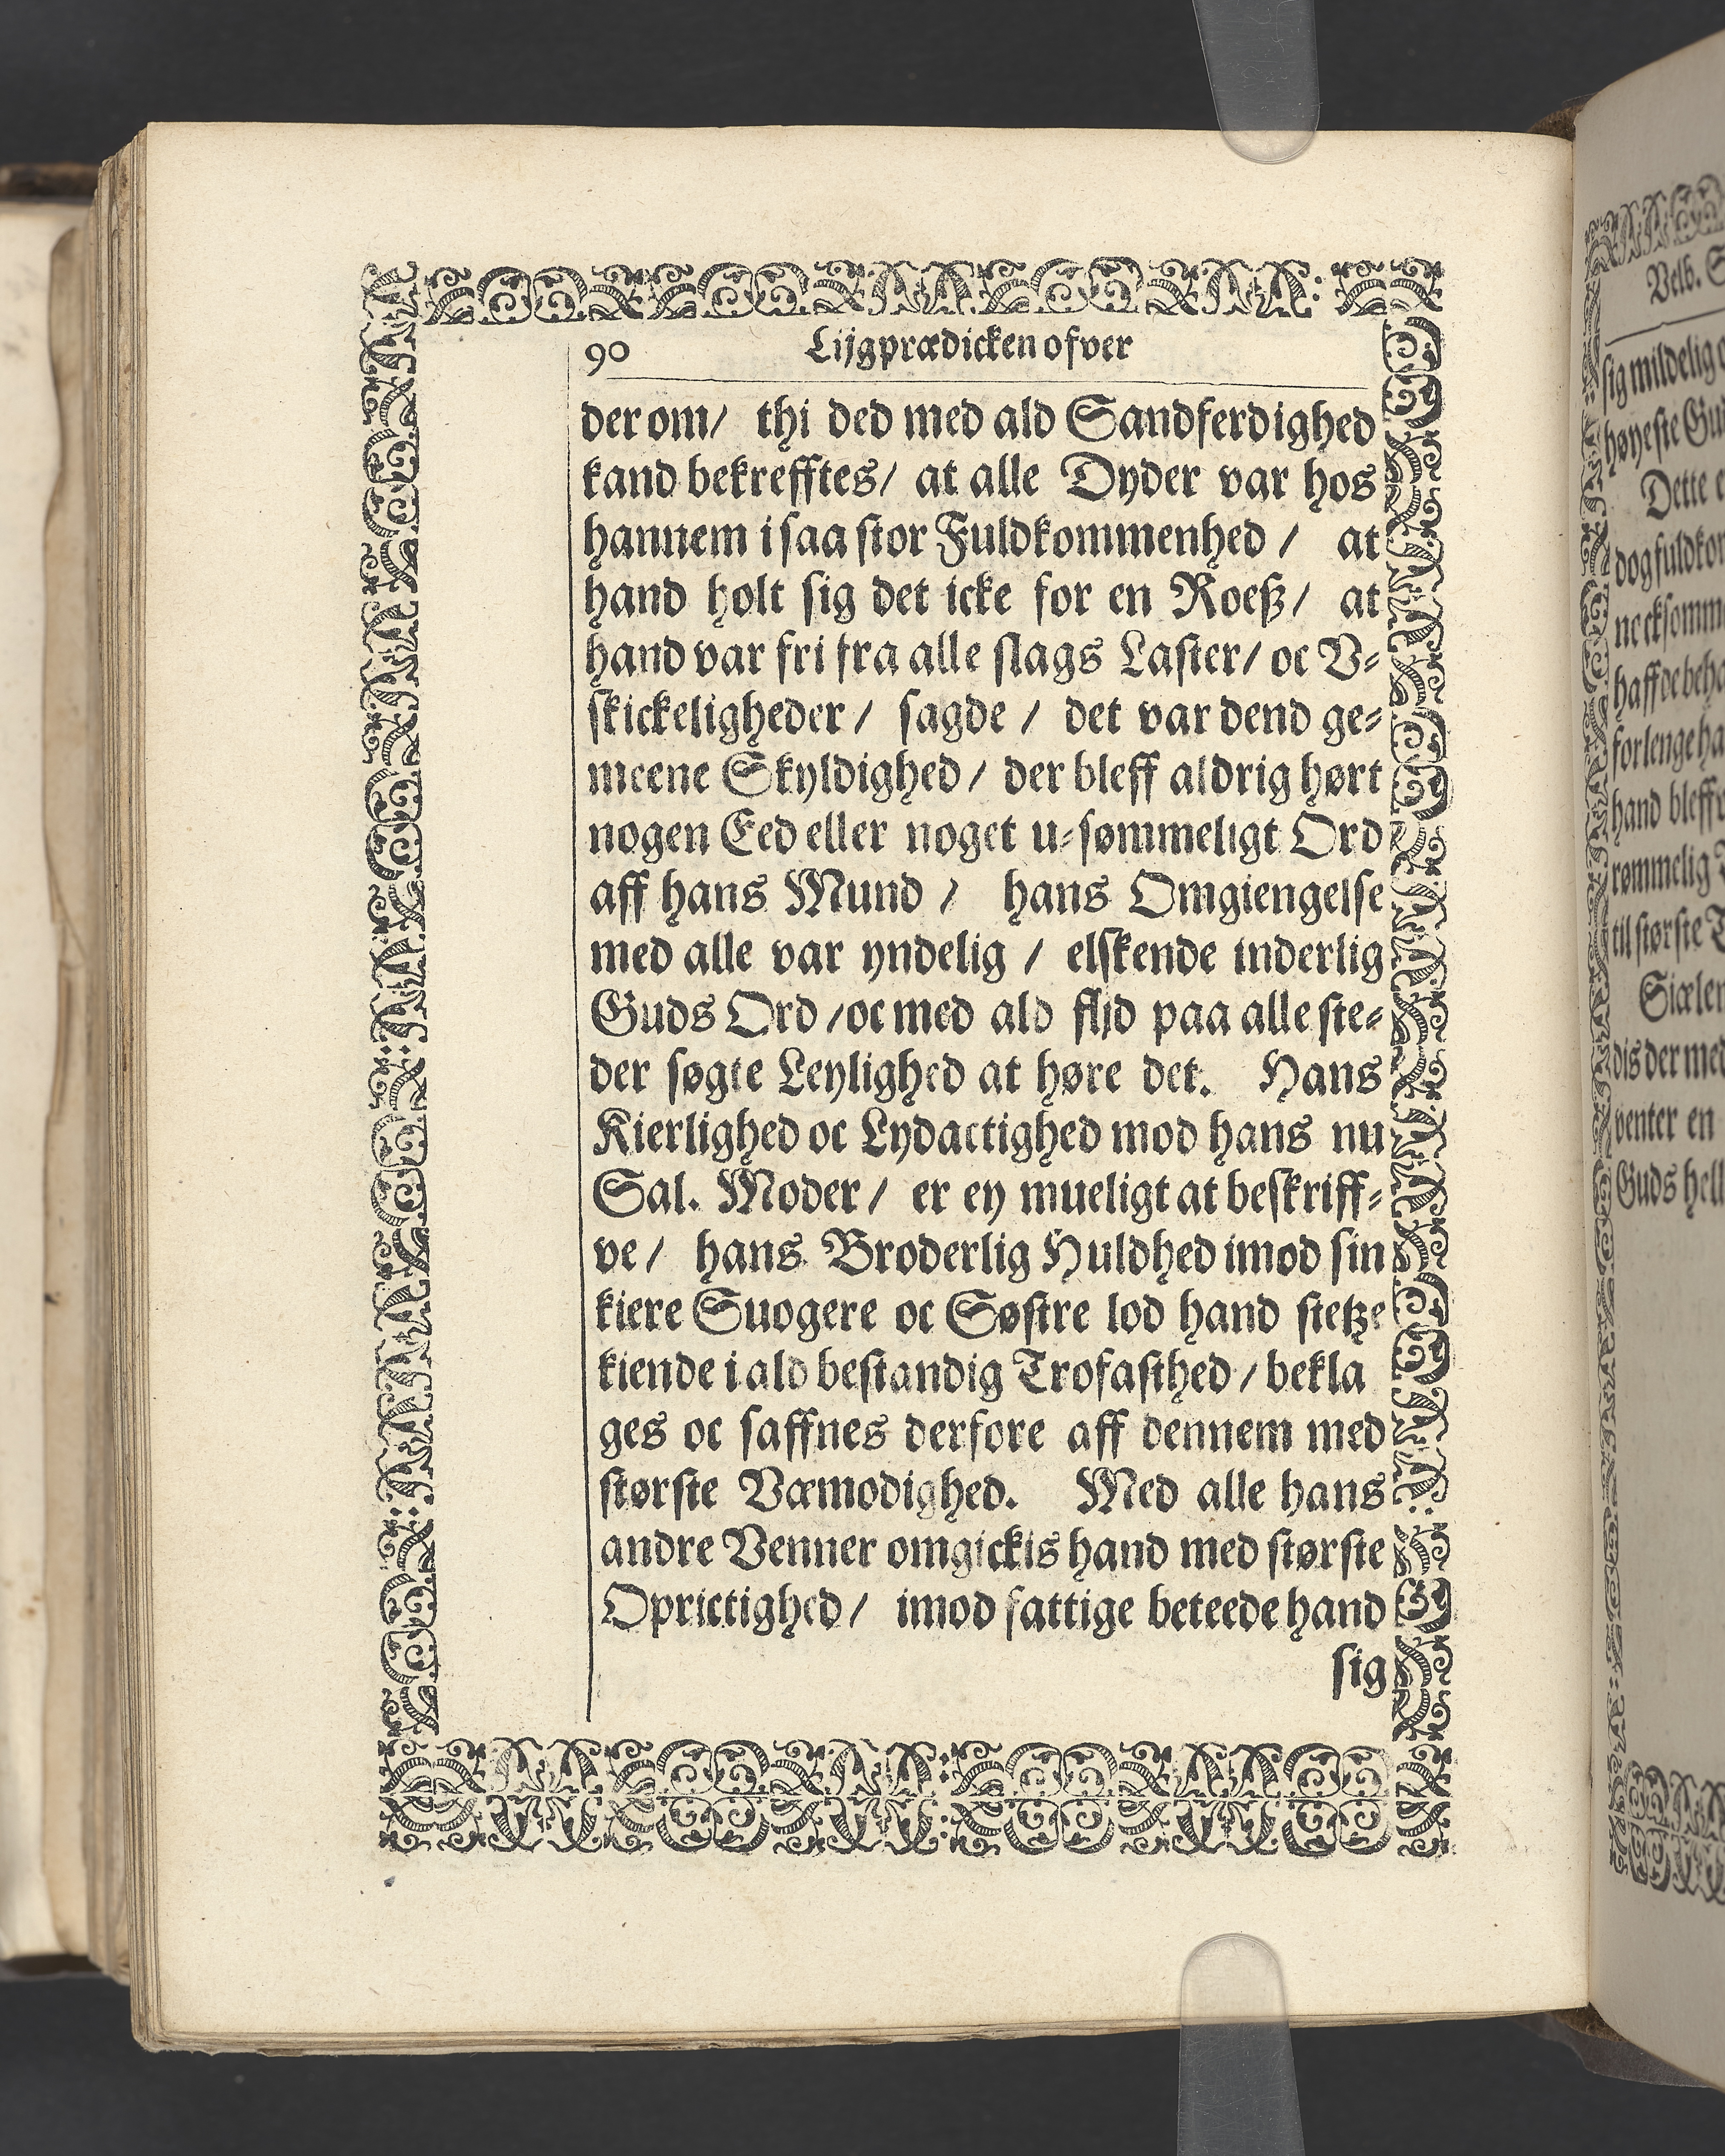 90 Lijgprædicken ofver
der om/ thi ded med ald Sandferdighed
kand bekrefftes/ at alle Dyder var hos
hannem i saa stor Fuldkommenhed / at
hand holt sig det icke for en Roeß/ at
hand var fri fra alle slags Laster/ oc V-
skickeligheder / sagde / det var dend ge-
meene Skyldighed / der bleff aldrig hørt
nogen Eed eller noget u-sømmeligt Ord
aff hans Mund / hans Omgiengelse
med alle var yndelig / elskende inderlig
Guds Ord / oc med ald flijd paa alle ste-
der søgte Leylighed at høre det. Hans
Kierlighed oc Lydactighed mod hans nu
Sal. Moder / er ey mueligt at beskriff-
ve / hans Broderlig Huldhed imod sin
kiere Suogere oc Søstre lod hand stetze
kiende i ald bestandig Trofasthed / bekla
ges oc saffnes derfore aff dennem med
største Væmodighed. Med alle hans
andre Venner omgickis hand med største
Oprictighed / imod fattige beteede hand
sig
Velb.
sig mildelig
høyeste
Dette
dog
forlenge
hand bleff
rømmelig
til største
dis der med
venter en
Guds